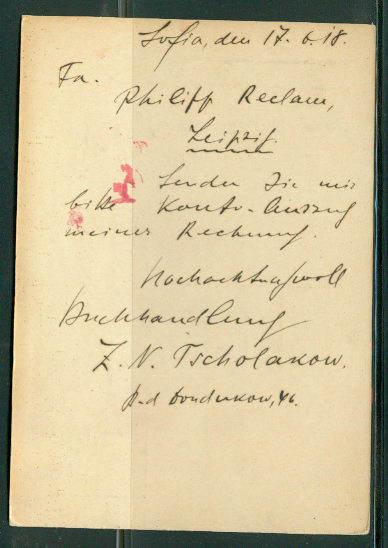 Sofia, den 17. 6. 18.
Fa.
Philipp Reclam,
Leipzig.
Senden Sie mir
bitte Konto-Auszug
meiner Rechnung.
Hochachtungsvoll
Buchhandlung
Z. N. Tscholakow.
B-d Dondukow, 46.